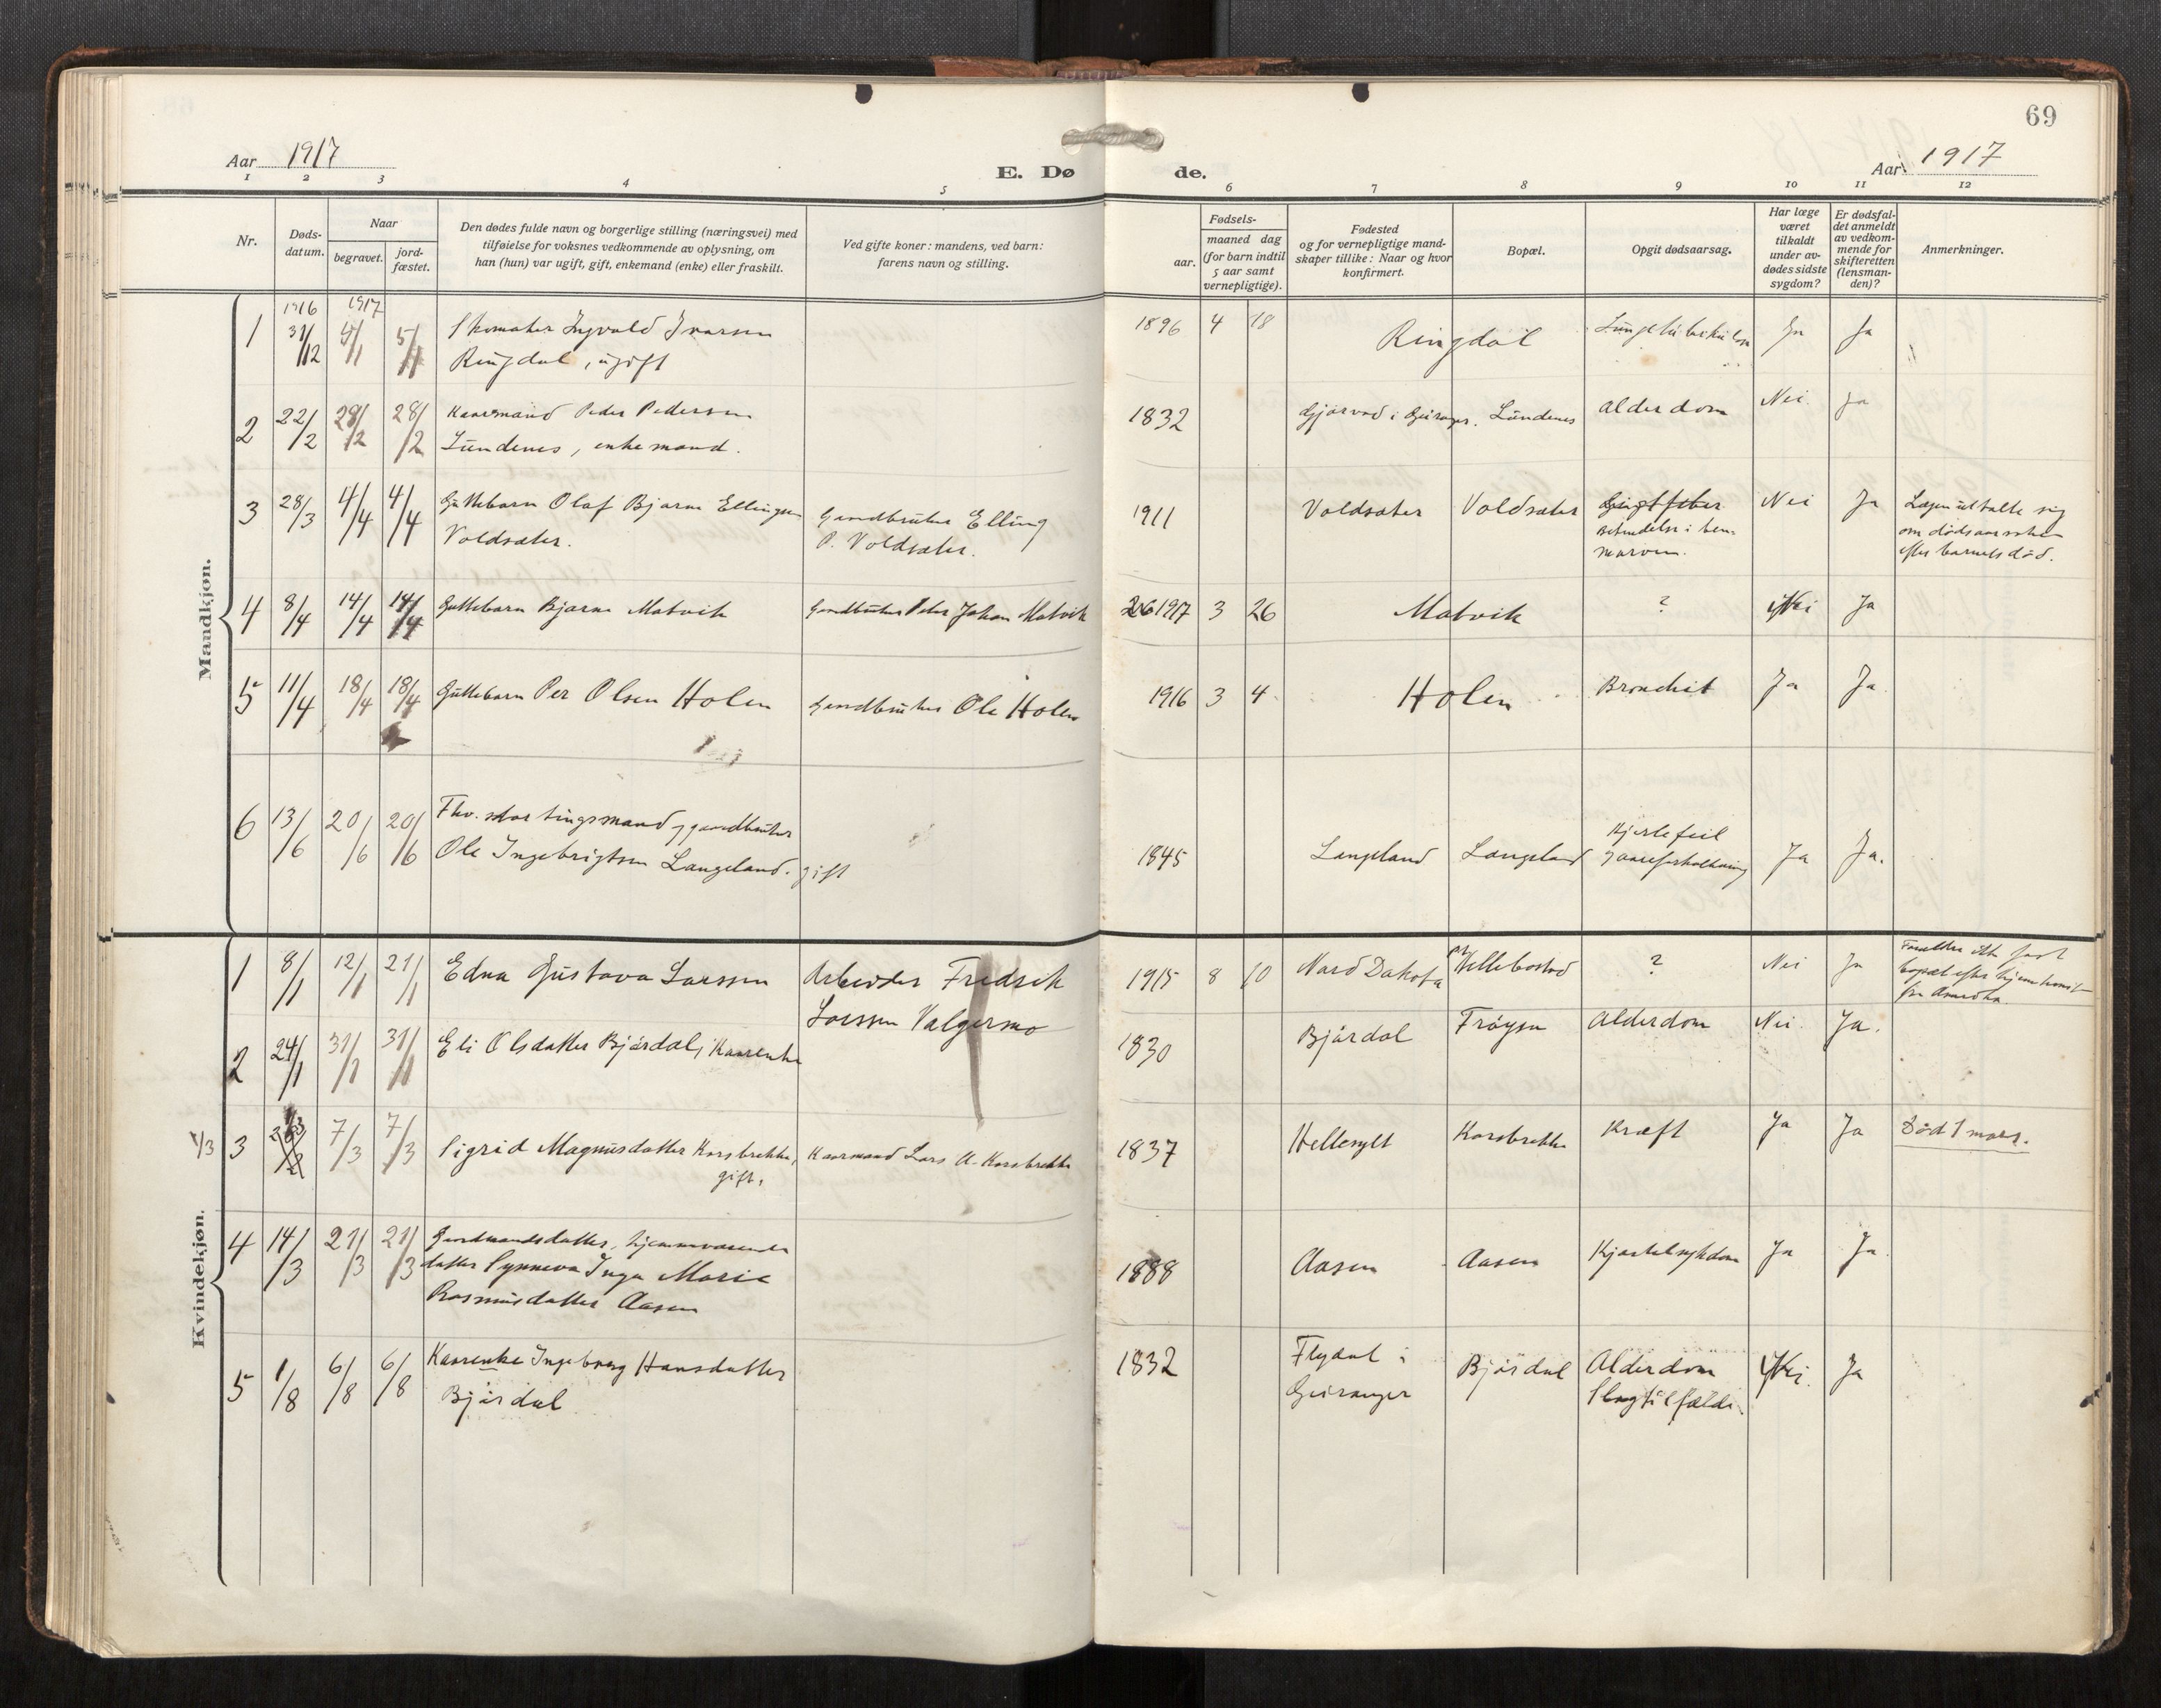 69
Aar 1917
E. Dø
de.
Aar 1917
1 2 3 4 5 6 7 8 9 10 11 12
Nr.
Døds-
datum.
Naar
begravet.
jord-
fæstet.
Den dødes fulde navn og borgerlige stilling (næringsvei) med
tilføielse for voksnes vedkommende av oplysning, om
han (hun) var ugift, gift, enkemand (enke) eller fraskilt.
Ved gifte koner: mandens, ved barn:
farens navn og stilling.
Fødsels-
aar.
maaned dag
(for barn indtil
5 aar samt
vernepligtige).
Fødested
og for vernepligtige mand-
skaper tillike: Naar og hvor
konfirmert.
Bopæl.
Opgit dødsaarsag.
Har læge
været
tilkaldt
under av-
dødes sidste
sygdom?
Er dødsfal-
det anmeldt
av vedkom-
mende for
skifteretten
(lensman-
den)?
Anmerkninger.
Maandkjøn.
1916 1917
1 31/12 5/1 5/1 Skomaker Ingvald Ivarsen 1896 4 18 Ringdal Lungetuberkulose Ja Ja
Ringdal, ugift
2 22/2 28/2 28/2 Kaarmand Peder Pedersen 1832 Gjørvad i Geiranger. Lundenes Alderdom Nei Ja
Lundenes, enkemand.
3 28/3 4/4 4/4 Guttebarn Olaf Bjarne Ellingsen Gardbruker Elling 1911 Voldsæter Voldsæter Gigtfeber Nei Ja Lægen uttalte sig
Voldsæter. P. Voldsæter. betændelse i ben- om dødsaarsaken
marven. efter barnets død.
4 8/4 14/4 14/4 Guttebarn Bjarne Matvik Gardbruker Peter Johan Matvik 1917 3 26 Matvik ? Nei Ja
5 11/4 18/4 18/4 Guttebarn Per Olsen Holen Gardbruker Ole Holen 1916 3 4 Holen Bronchit Ja Ja
6 13/6 20/6 20/6 Fhv. stortingsmand, gaardbruker Hjertefeil
Ole Ingebrigtsen Langeland. gift 1845 Langeland Langeland aareforkalkning Ja Ja.
Kvindekjøn.
1 8/1 12/1 21/1 Edna Gustava Larssen Arbeider Fredrik 1915 8 10 Nord Dakota Hellebostad ? Nei Ja Forældre ikke fast
Larssen Valgermo bopæl efter hjemkomst
fra Amerika.
2 24/1 31/1 31/1 Eli Olsdatter Bjørdal, Kaarenke 1830 Bjørdal Frøysa Alderdom Nei. Ja.
1/3 3 7/3 7/3 Sigrid Magnusdatter Korsbrekke, Kaarmand Lars A. Korsbrekke 1837 Hellesylt Korsbrekke Kræft Ja Ja Død 1 mars.
gift.
4 14/3 21/3 21/3 Gardmandsdatter, hjemmeværende
datter Synneva Inga Marie 1888 Aasen Aasen Hjertesykdom Ja Ja
Rasmusdatter Aasen
5 1/8 6/8 6/8 Kaarenke Ingeborg Hansdatter 1832 Flydal i Bjørdal Alderdom Nei. Ja
Bjørdal Geiranger Slagtilfælde.